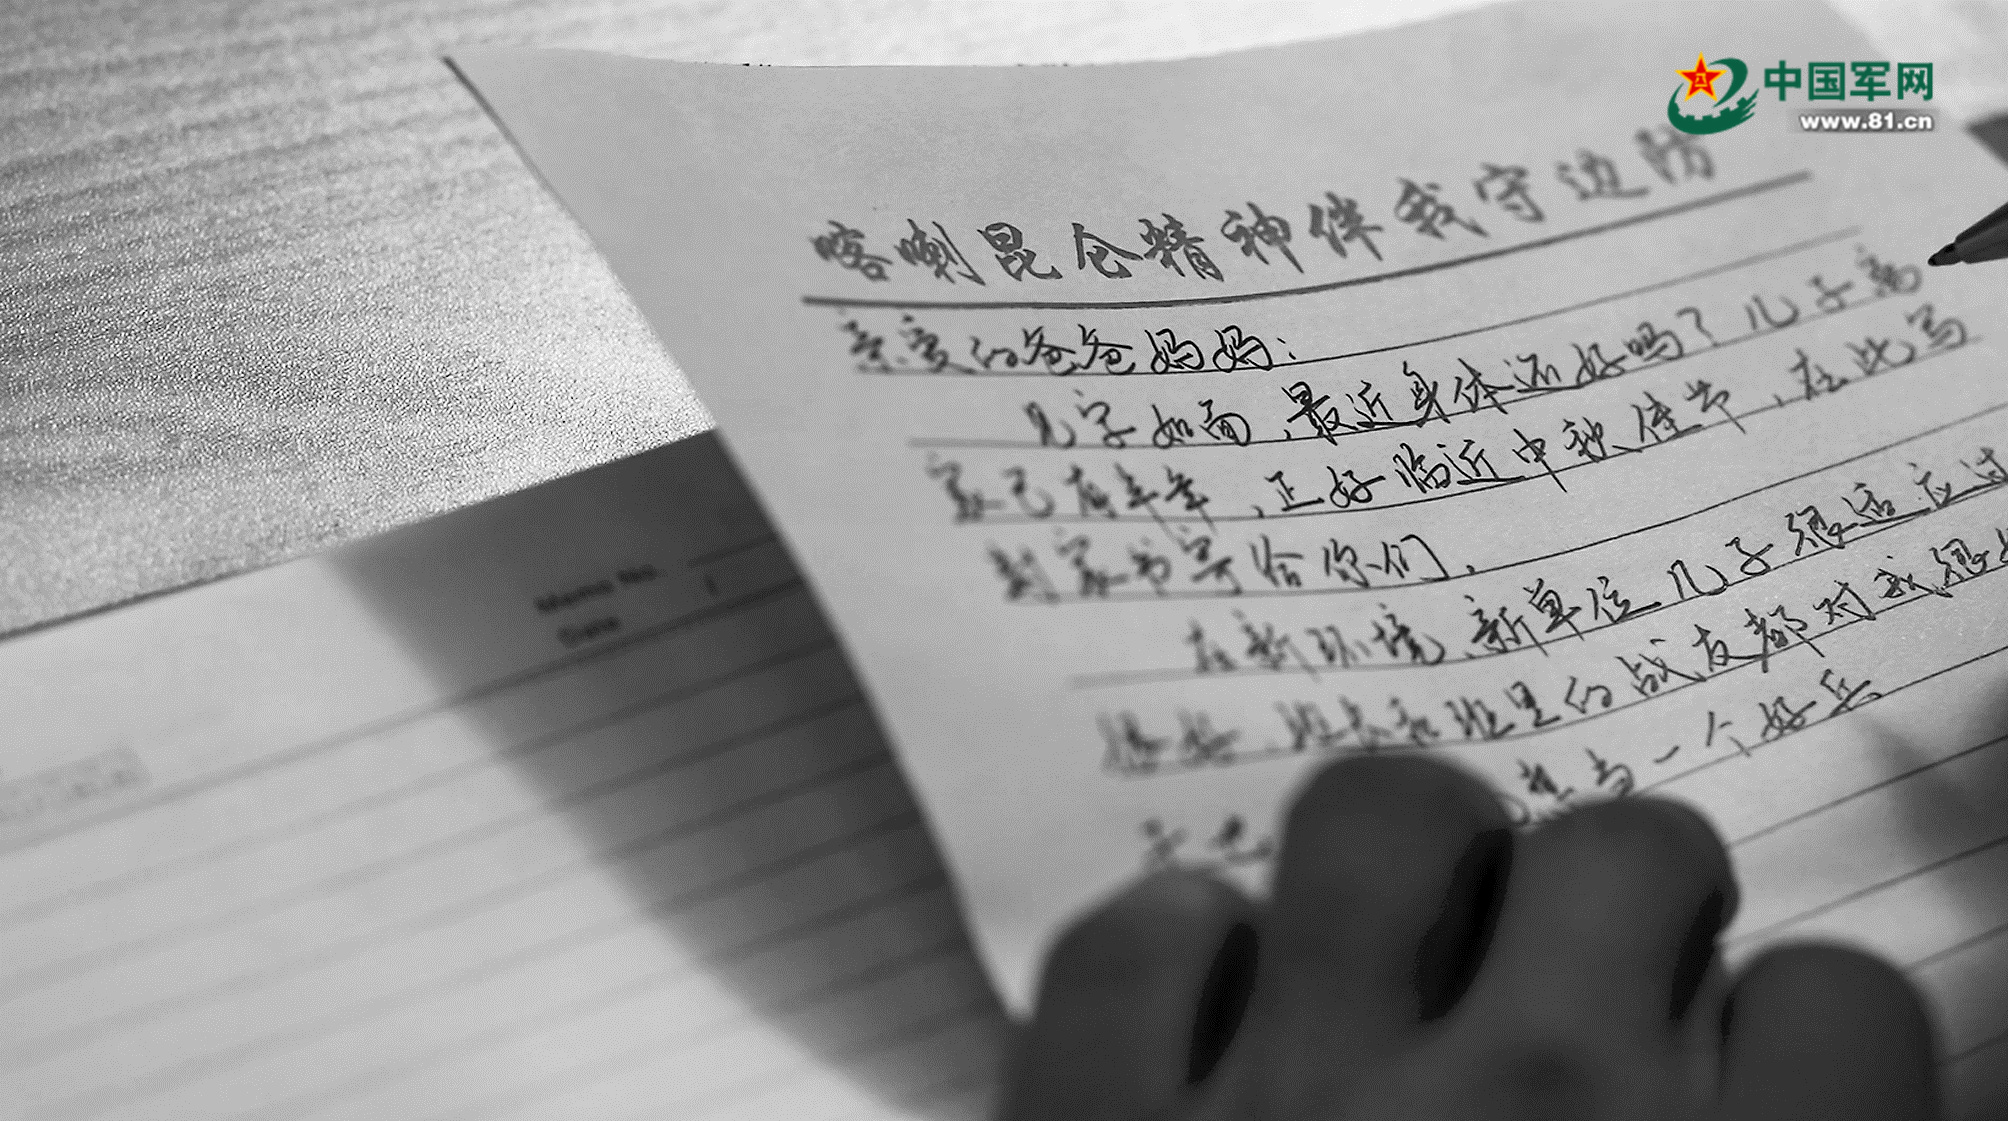 中国军网
www.81.cn
喀喇昆仑精神伴我守边防
亲爱的爸爸妈妈：
见字如面、最近身体还好吗？儿子离
家已有半年，正好临近中秋佳节，在此写
封家书寄给你们。
在新环境、新单位儿子很适应过
得好、班长和班里的战友都对我很好
想当一个好兵
Memo No.
Date